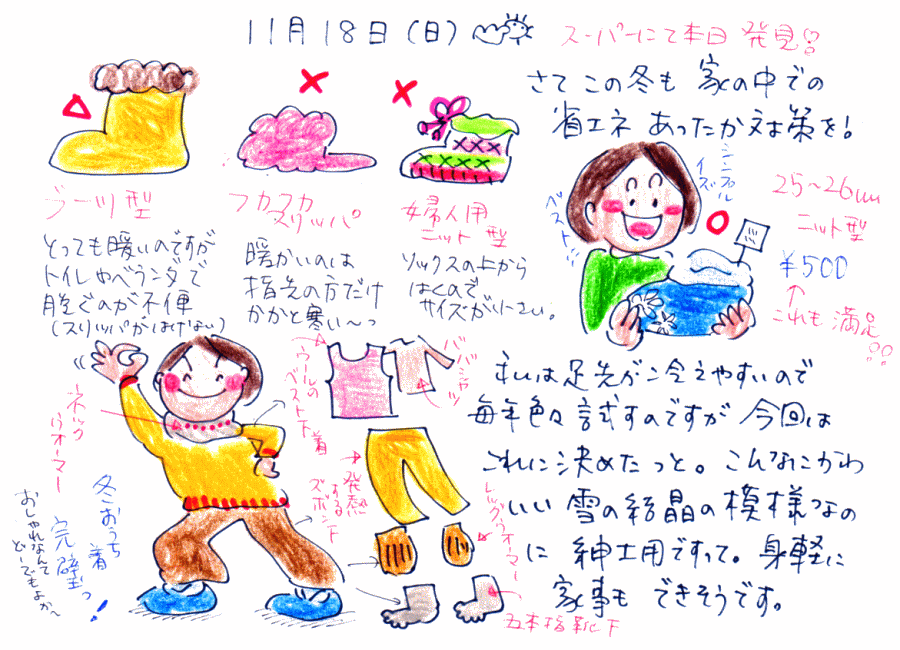 11月18日(日)
スーパーにて本日発見!!
さてこの冬も家の中での
省エネあったか対策を!
ブーツ型
とっても暖いのですが
トイレやベランダで
脱ぐのが不便
(スリッパがはけない)
フカフカ
スリッパ
暖かいのは
指先の方だけ
かかと寒い〜っ
婦人用
ニット型
ソックスの上から
はくので
サイズが小さい。
シンプル
イズ
ベスト!
25〜26cm
ニット型
¥500
↑
これも満足!!
私は足先が冷えやすいので
毎年色々試すのですが今回は
これに決めたっと。こんなにかわ
いい雪の結晶の模様つなの
に紳士用ですって。身軽に
家事もできそうです。
ネック
ウォーマー
冬おうち
着
完璧っ!
おしゃれなんて
どーでもよか〜
ウールの
ベスト下着
ババシャツ
発熱
する
ズボン下
レッグウォーマー
五本指靴下